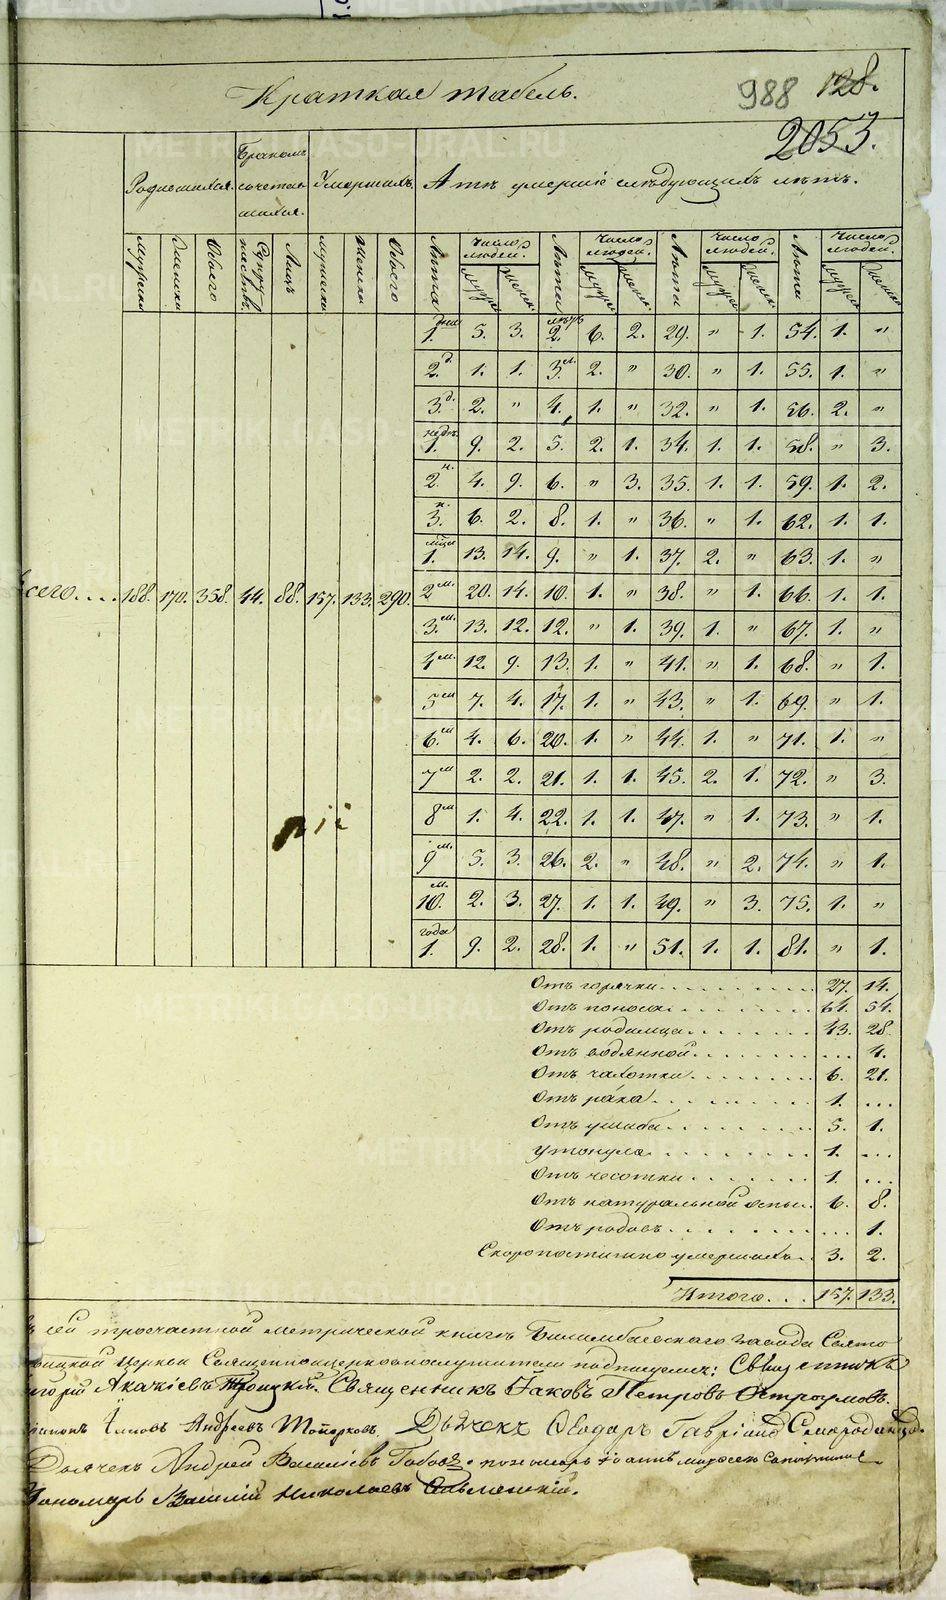 Краткая табель.
988 128.
2053.
Родившихся. Бракомъ сочетавшихся. Умершихъ. А тѣ умершіе слѣдующихъ лѣтъ.
Мужеска Женска Обоего Супружествъ. Лицъ мужеска женска Обоего Лѣта Число людей. Мужес. Женс. Лѣта Число людей. Мужес. Женс. Лѣта Число людей. Мужес. Женс. Лѣта Число людей. Мужес. Женс.
1. дня 5. 3. 2. лѣтъ 6. 2. 29. " 1. 54. 1. "
2. д. 1. 1. 3. л. 2. " 30. " 1. 55. 1. "
3. д. 2. " 4. 1. " 32. " 1. 56. 2. "
1. недѣ. 9. 2. 5. 2. 1. 34. 1. 1. 58. " 3.
2. н. 4. 9. 6. " 3. 35. 1. 1. 59. 1. 2.
3. н. 6. 2. 8. 1. " 36. " 1. 62. 1. 1.
1. мца 13. 14. 9. " 1. 37. 2. " 63. 1. "
всего.... 188. 170. 358. 44. 88. 157. 133. 290. 2 м. 20. 14. 10. 1. " 38. " 1. 66. 1. 1.
3. м. 13. 12. 12. " 1. 39. 1. " 67. 1. "
4 м. 12. 9. 13. 1. " 41. " 1. 68. " 1.
5 м 7. 4. 17. 1. " 43. " 1. 69. " 1.
6. м 4. 6. 20. 1. " 44. 1. " 71. 1. "
7 м 2. 2. 21. 1. 1. 45. 2. 1. 72. " 3.
8 м 1. 4. 22. 1. 1. 47. " 1. 73. " 1.
9 м. 5. 3. 26. 2. " 48. " 2. 74. " 1.
10. м. 2. 3. 27. 1. 1. 49. " 3. 75. 1. "
1. года 9. 2. 28. 1. " 51. 1. 1. 81. " 1.
Отъ горячки........ 27. 14.
Отъ поноса........ 64. 54.
Отъ родимца........ 43. 28.
Отъ водянной........ ... 4.
Отъ чахотки........ 6. 21.
Отъ рака........ 1. ...
Отъ ушиба........ 5. 1.
утонуло........ 1. ...
Отъ чесотки........ 1. ...
Отъ натуральной оспы.. 6. 8.
Отъ родовъ........ ... 1.
Скоропостижно умершихъ.. 3. 2.
Итого.... 157. 133.
сей троечастной метрической книгѣ Билимбаевскаго завода Свято
Троицкой Церкви Священноцерковнослужители подписуемся: Священникъ
Григорій Акакіевъ Троицкій. Священникъ Іаковъ Петровъ Остроумовъ.
Андреевъ Топорковъ. Дьячекъ Ѳеодоръ Гавріиловъ Смородинцовъ.
Дьячекъ Андрей Васильевъ Поповъ. пономарь
Пономарь Василій Николаевъ